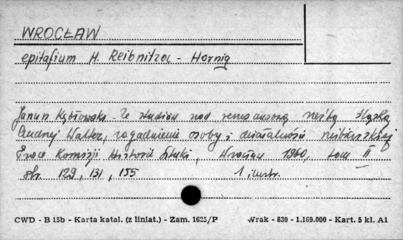 WROCŁAW
epitafium H. Reibnitza - Hornig
Janina Kębłowska - Ze studiów nad renesansową rzeźbą śląską
Andrzej Walter, zagadnienie osoby i działalności
Prace Komisji Historii Sztuki, Wrocław 1960, tom II
str. 129, 131, 155 1 ilustr.
CWD - B 15b - Karta katal. (z liniat.) - Zam. 1625/P Wrak - 830 - 1.169.000 - Kart. 5 kl. A1